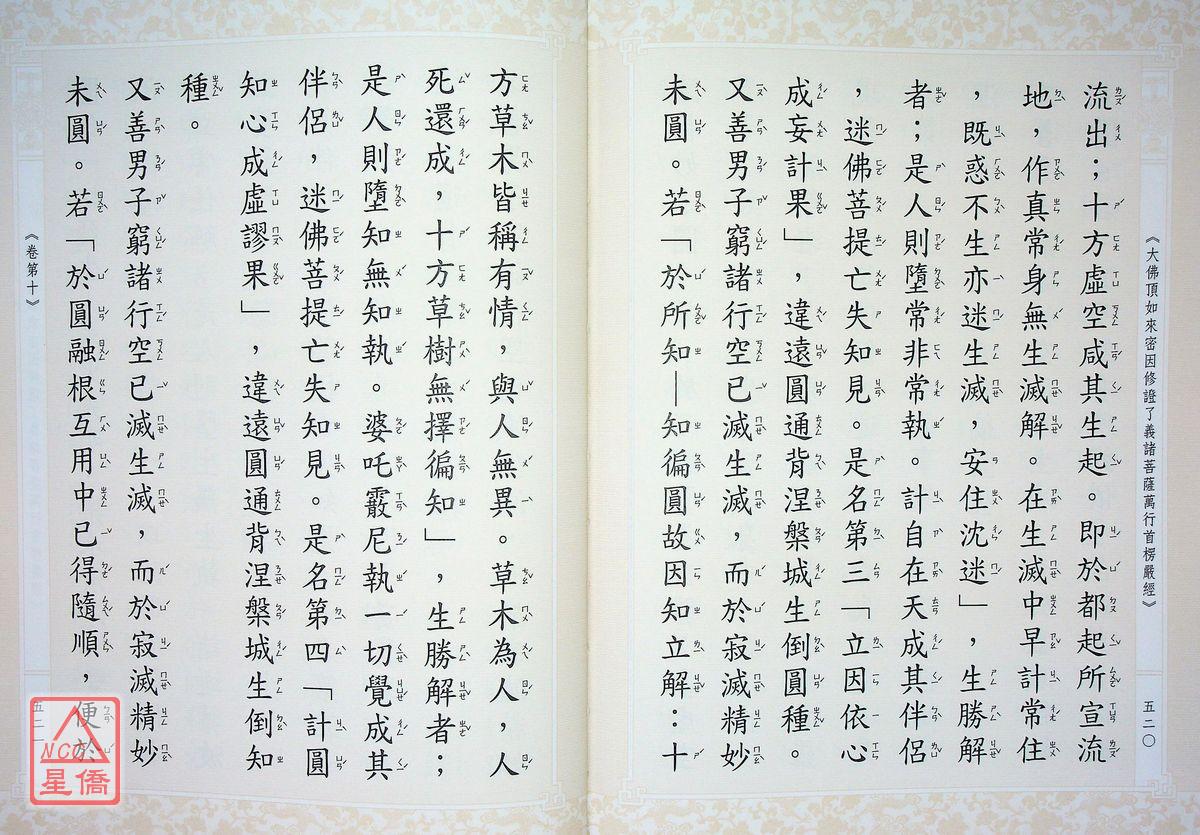 《大佛頂如來密因修證了義諸菩薩萬行首楞嚴經》
五二〇
流出；十方虛空咸其生起。即於都起所宣流
地，作真常身無生滅解。在生滅中早計常住
，既惑不生亦迷生滅，安住沈迷」，生勝解
者；是人則墮常非常執。計自在天成其伴侶
，迷佛菩提亡失知見。是名第三「立因依心
成妄計果」，違遠圓通背涅槃城生倒圓種。
又善男子窮諸行空已滅生滅，而於寂滅精妙
未圓。若「於所知—知徧圓故因知立解：十
方草木皆稱有情，與人無異。草木為人，人
死還成，十方草樹無擇徧知」，生勝解者；
是人則墮知無知執。婆吒霰尼執一切覺成其
伴侶，迷佛菩提亡失知見。是名第四「計圓
知心成虛謬果」，違遠圓通背涅槃城生倒知
種。
又善男子窮諸行空已滅生滅，而於寂滅精妙
未圓。若「於圓融根互用中已得隨順，便於
《卷第十》
五二
NCC
星僑